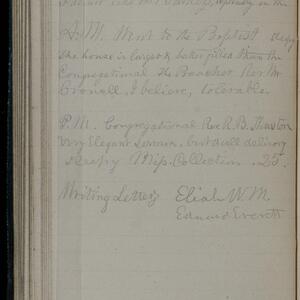 A.M. Went to the Baptist
the house is larger & better filled than the
Congregational the Preacher Rev. Mr
I believe, tolerable.
P.M. Congregational Rev R.B. Thurston
Very Elegant Sermon, but dull delivery
Sleepy Miss. Collection .25.
Writing Letters Elijah W. M.
Edward Everett